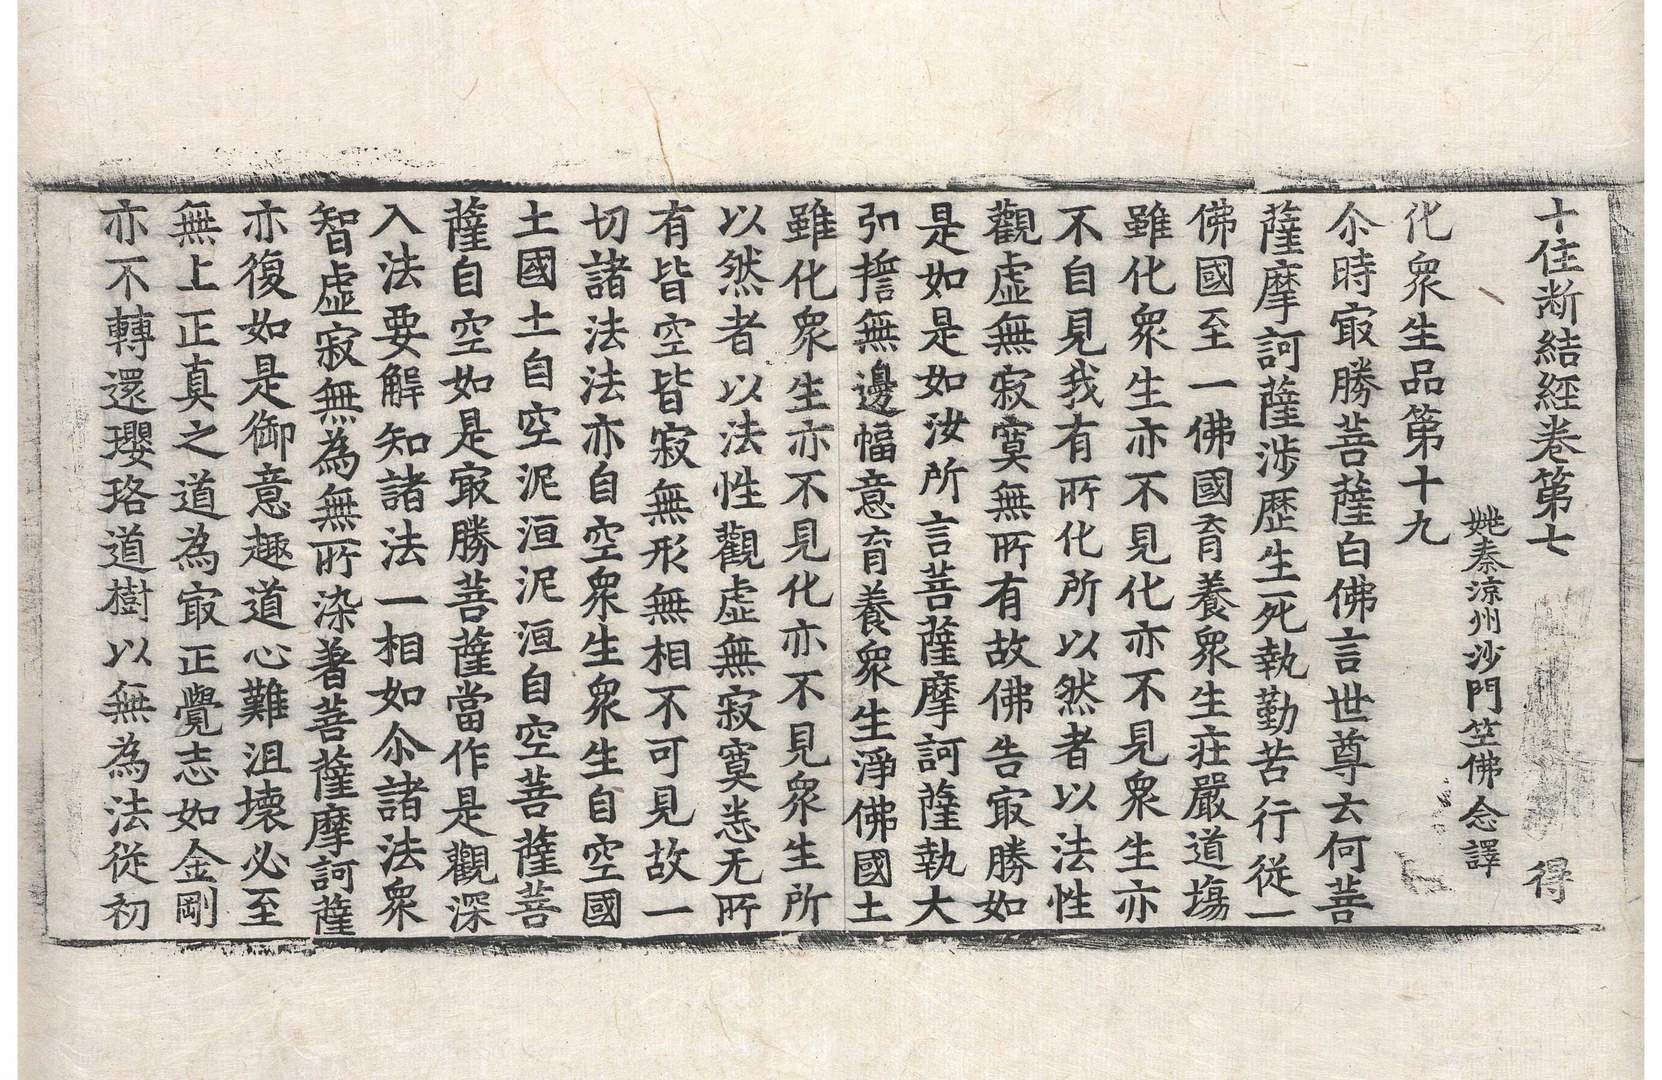 十住断結經卷第七　得
姚秦涼州沙門竺佛念譯
化衆生品第十九
尒時㝡勝菩薩白佛言世尊云何菩
薩摩訶薩涉歷生死執勤苦行從一
佛國至一佛國育養衆生莊嚴道塲
雖化衆生亦不見化亦不見衆生亦
不自見我有所化所以然者以法性
觀虛無寂寞無所有故佛告㝡勝如
是如是如汝所言菩薩摩訶薩執大
弘誓無邊幅意育養衆生淨佛國土
雖化衆生亦不見化亦不見衆生所
以然者以法性觀虛無寂寞恙无所
有皆空皆寂無形無相不可見故一
切諸法法亦自空衆生衆生自空國
土國土自空泥洹泥洹自空菩薩菩
薩自空如是㝡勝菩薩當作是觀深
入法要解知諸法一相如尒諸法衆
智虛寂無為無所染著菩薩摩訶薩
亦復如是御意趣道心難沮壞必至
無上正真之道為㝡正覺志如金剛
亦不轉還瓔珞道樹以無為法從初